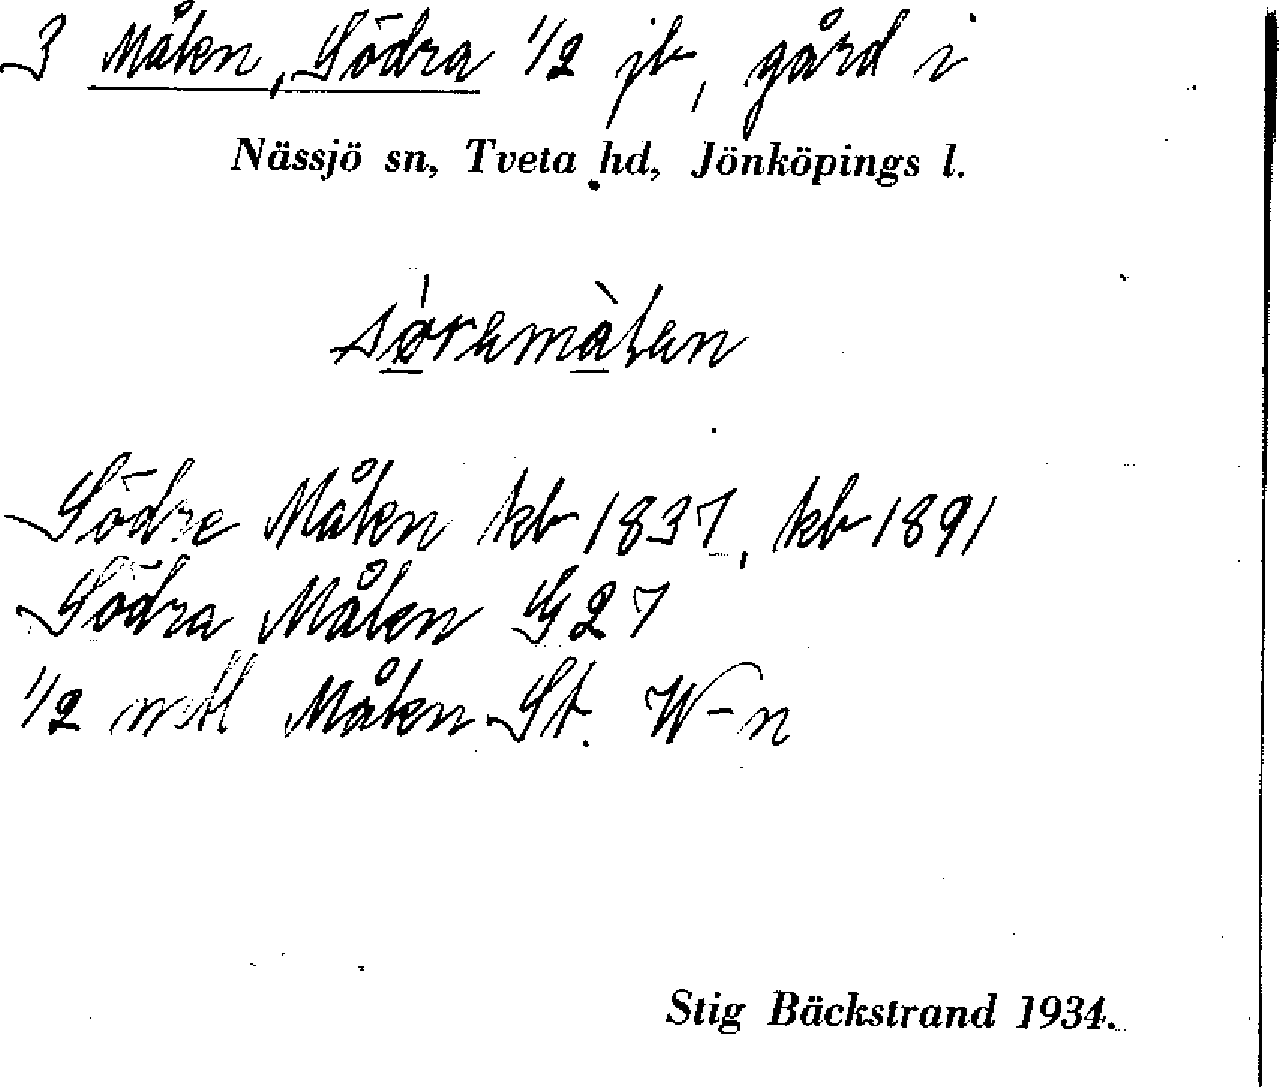 3 Målen, Södra 1/2 jb, gård i
Nässjö sn, Tveta hd, Jönköpings l.
Södre Målen kb 1837, kb 1891
Södra Målen G 27
1/2 mtl Målen St. W-n
Stig Bäckstrand 1934.